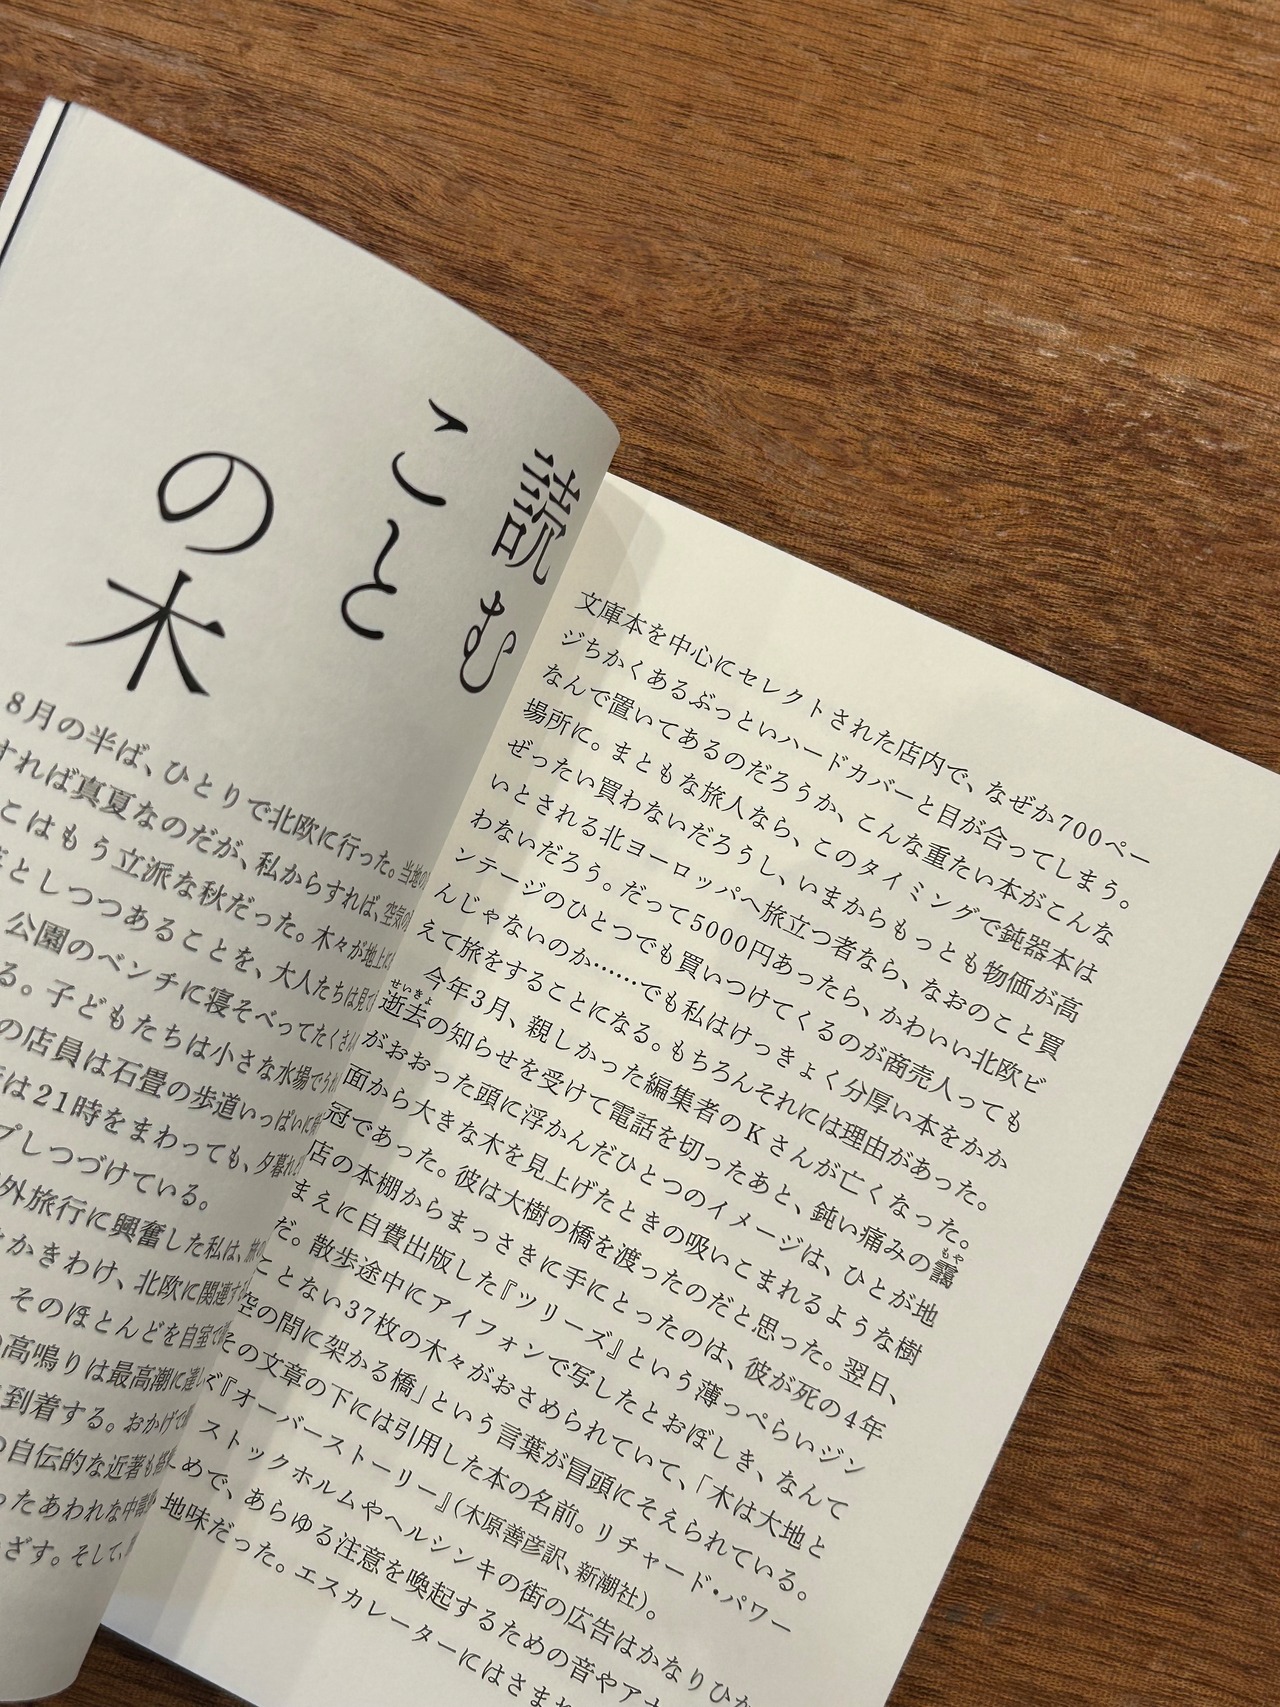 読む
こと
の木
8月の半ば、ひとりで北欧に行った。当地の
すれば真夏なのだが、私からすれば、空気の
こはもう立派な秋だった。木々が地上に
としつつあることを、大人たちは見て
公園のベンチに寝そべってたくさん
る。子どもたちは小さな水場でうれ
の店員は石畳の歩道いっぱいに
は21時をまわっても、夕暮れ
プしつづけている。
外旅行に興奮した私は、旅の
かきわけ、北欧に関連す
そのほとんどを自室で
高鳴りは最高潮に達し
到着する。おかげで
の自伝的な近著も
ったあわれな中
ざす。そして、
文庫本を中心にセレクトされた店内で、なぜか700ペー
ジちかくあるぶっといハードカバーと目が合ってしまう。
なんで置いてあるのだろうか、こんな重たい本がこんな
場所に。まともな旅人なら、このタイミングで鈍器本は
ぜったい買わないだろうし、いまからもっとも物価が高
いとされる北ヨーロッパへ旅立つ者なら、なおのこと買
わないだろう。だって5000円あったら、かわいい北欧ビ
ンテージのひとつでも買いつけてくるのが商売人っても
んじゃないのか……でも私はけっきょく分厚い本をかか
えて旅をすることになる。もちろんそれには理由があった。
今年3月、親しかった編集者のKさんが亡くなった。
せいきょ
逝去の知らせを受けて電話を切ったあと、鈍い痛みの靄
もや
がおおった頭に浮かんだひとつのイメージは、ひとが地
面から大きな木を見上げたときの吸いこまれるような樹
冠であった。彼は大樹の橋を渡ったのだと思った。翌日、
店の本棚からまっさきに手にとったのは、彼が死の4年
まえに自費出版した『ツリーズ』という薄っぺらいジン
だ。散歩途中にアイフォンで写したとおぼしき、なんて
ことない37枚の木々がおさめられていて、「木は大地と
空の間に架かる橋」という言葉が冒頭にそえられている。
その文章の下には引用した本の名前。リチャード・パワー
『オーバーストーリー』(木原善彦訳、新潮社)。
ストックホルムやヘルシンキの街の広告はかなりひか
めで、あらゆる注意を喚起するための音やアナ
地味だった。エスカレーターにはさまれ